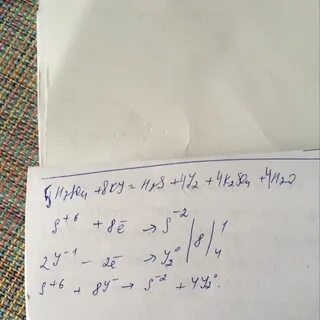 5H₂SO₄ + 8KY = H₂S + 4Y₂ + 4K₂SO₄ + 4H₂O
S⁺⁶ + 8ē → S⁻² | 8 | 1
2Y⁻¹ - 2ē → Y₂⁰ | | 4
S⁺⁶ + 8Y⁻ → S⁻² + 4Y₂⁰.